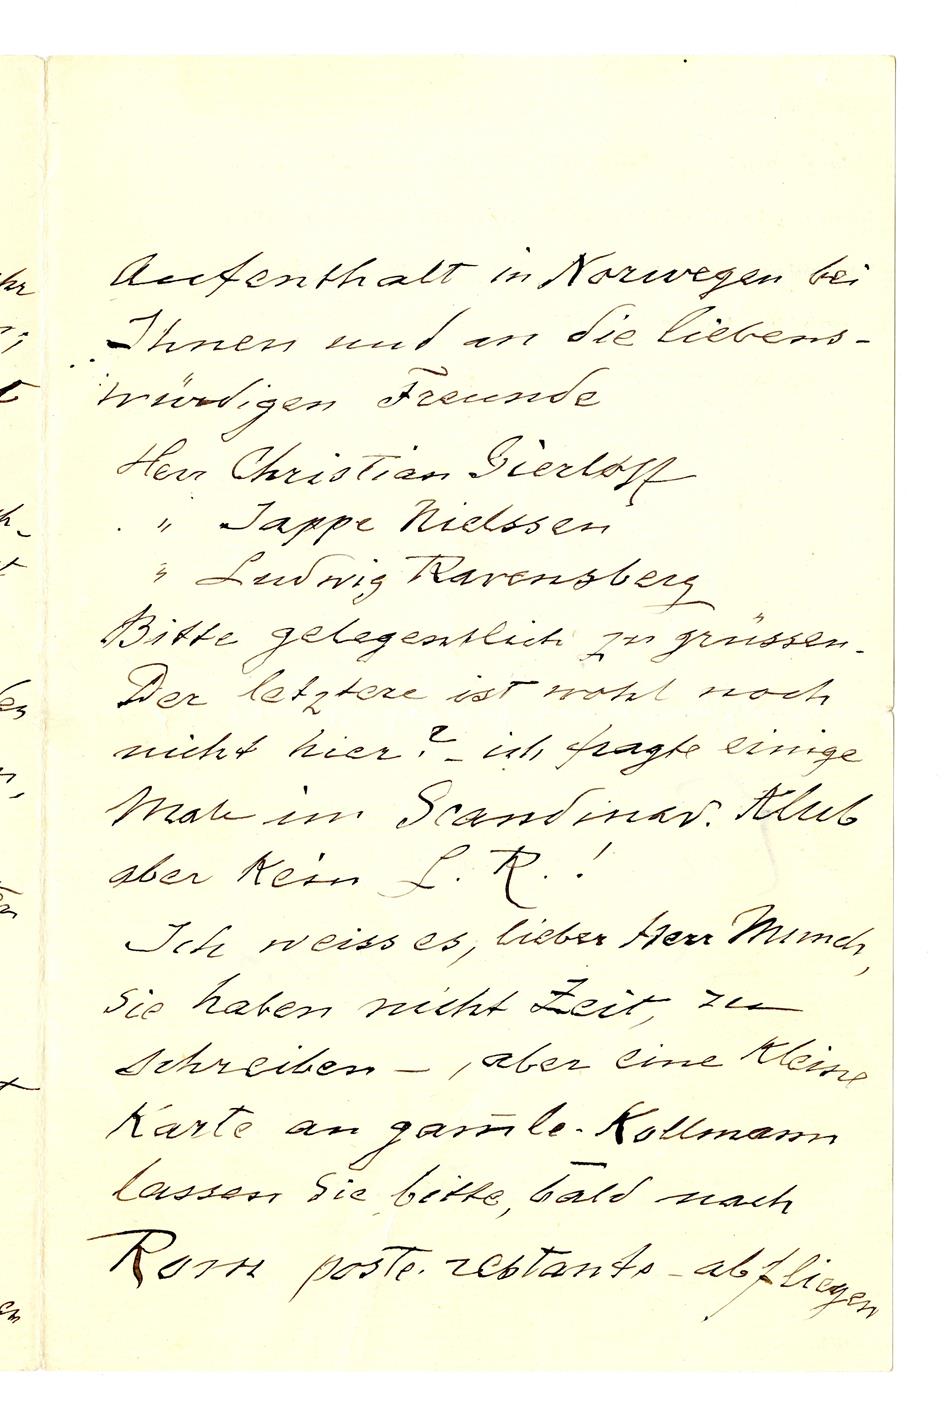 Aufenthalt in Norwegen bei
Ihnen und an die liebens-
würdigen Freunde
Herr Christian Gierlöff
" Jappe Nielssen
" Ludwig Ravensberg
Bitte gelegentlich zu grüssen.
Der letztere ist wohl noch
nicht hier? – ich fragte einige
Male im Scandinav. Klub
aber kein L. R. !
Ich weiss es, lieber Herr Munch,
Sie haben nicht Zeit, zu
schreiben – , aber eine kleine
Karte an gam̄le - Kollmann
lassen Sie, bitte, bald nach
Rom poste. restante – abfliegen